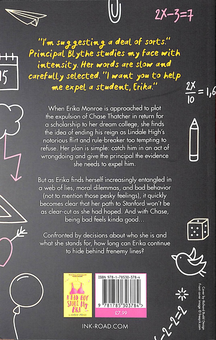 2X-3=7
"I'm suggesting a deal of sorts."
Principal Blythe studies my face with
intensity. Her words are slow and
carefully selected. "I want you to help
me expel a student, Erika."
When Erika Monroe is approached to plot
the expulsion of Chase Thatcher in return for
a scholarship to her dream college, she finds
the idea of ending his reign as Lindale High's
notorious flirt and rule-breaker too tempting to
refuse. Her plan is simple: catch him in an act of
wrongdoing and give the principal the evidence
she needs to expel him.
But as Erika finds herself increasingly entangled in
a web of lies, moral dilemmas, and bad behavior
(not to mention those pesky feelings), it quickly
becomes clear that her path to Stanford won't be
as clear-cut as she had hoped. And with Chase,
being bad feels kinda good . . .
Confronted by decisions about who she is and
what she stands for, how long can Erika continue
to hide behind frenemy lines?
15
2X
10
=1,6
£7.99
INK-ROAD.COM